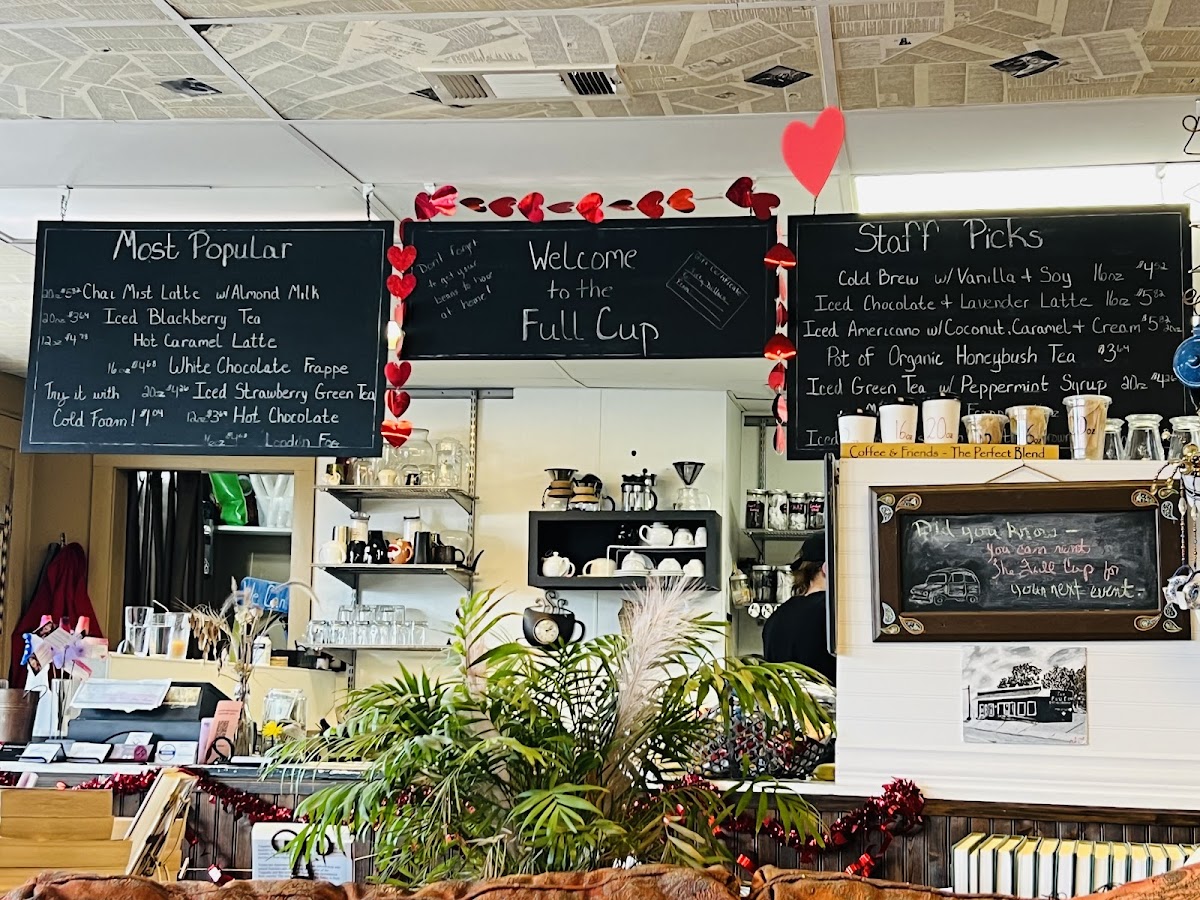 Most Popular
20oz $5.82 Chai Mist Latte w/Almond Milk
20oz $3.64 Iced Blackberry Tea
12oz $4.78 Hot Caramel Latte
16oz $4.68 White Chocolate Frappe
Try it with 20oz $4.26 Iced Strawberry Green Tea
Cold Foam! $1.04 12oz $3.64 Hot Chocolate
London Fog
Don't forget
to get your
beans to brew
at home!
Welcome
to the
Full Cup
Gift Certificate
Staff Picks
Cold Brew w/Vanilla + Soy 16oz $4.52
Iced Chocolate + Lavender Latte 16oz $5.82
Iced Americano w/Coconut, Caramel + Cream $5.82 20oz
Pot of Organic Honeybush Tea $3.64
Iced Green Tea w/ Peppermint Syrup 20oz $4.26
Iced
16oz
20oz
Coffee & Friends - The Perfect Blend
Did you know -
You can rent
The Full Cup for
your next event.